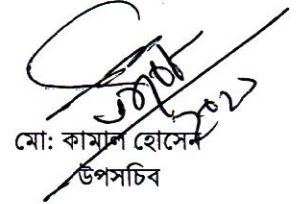 মো: কামাল হোসেন
উপসচিব